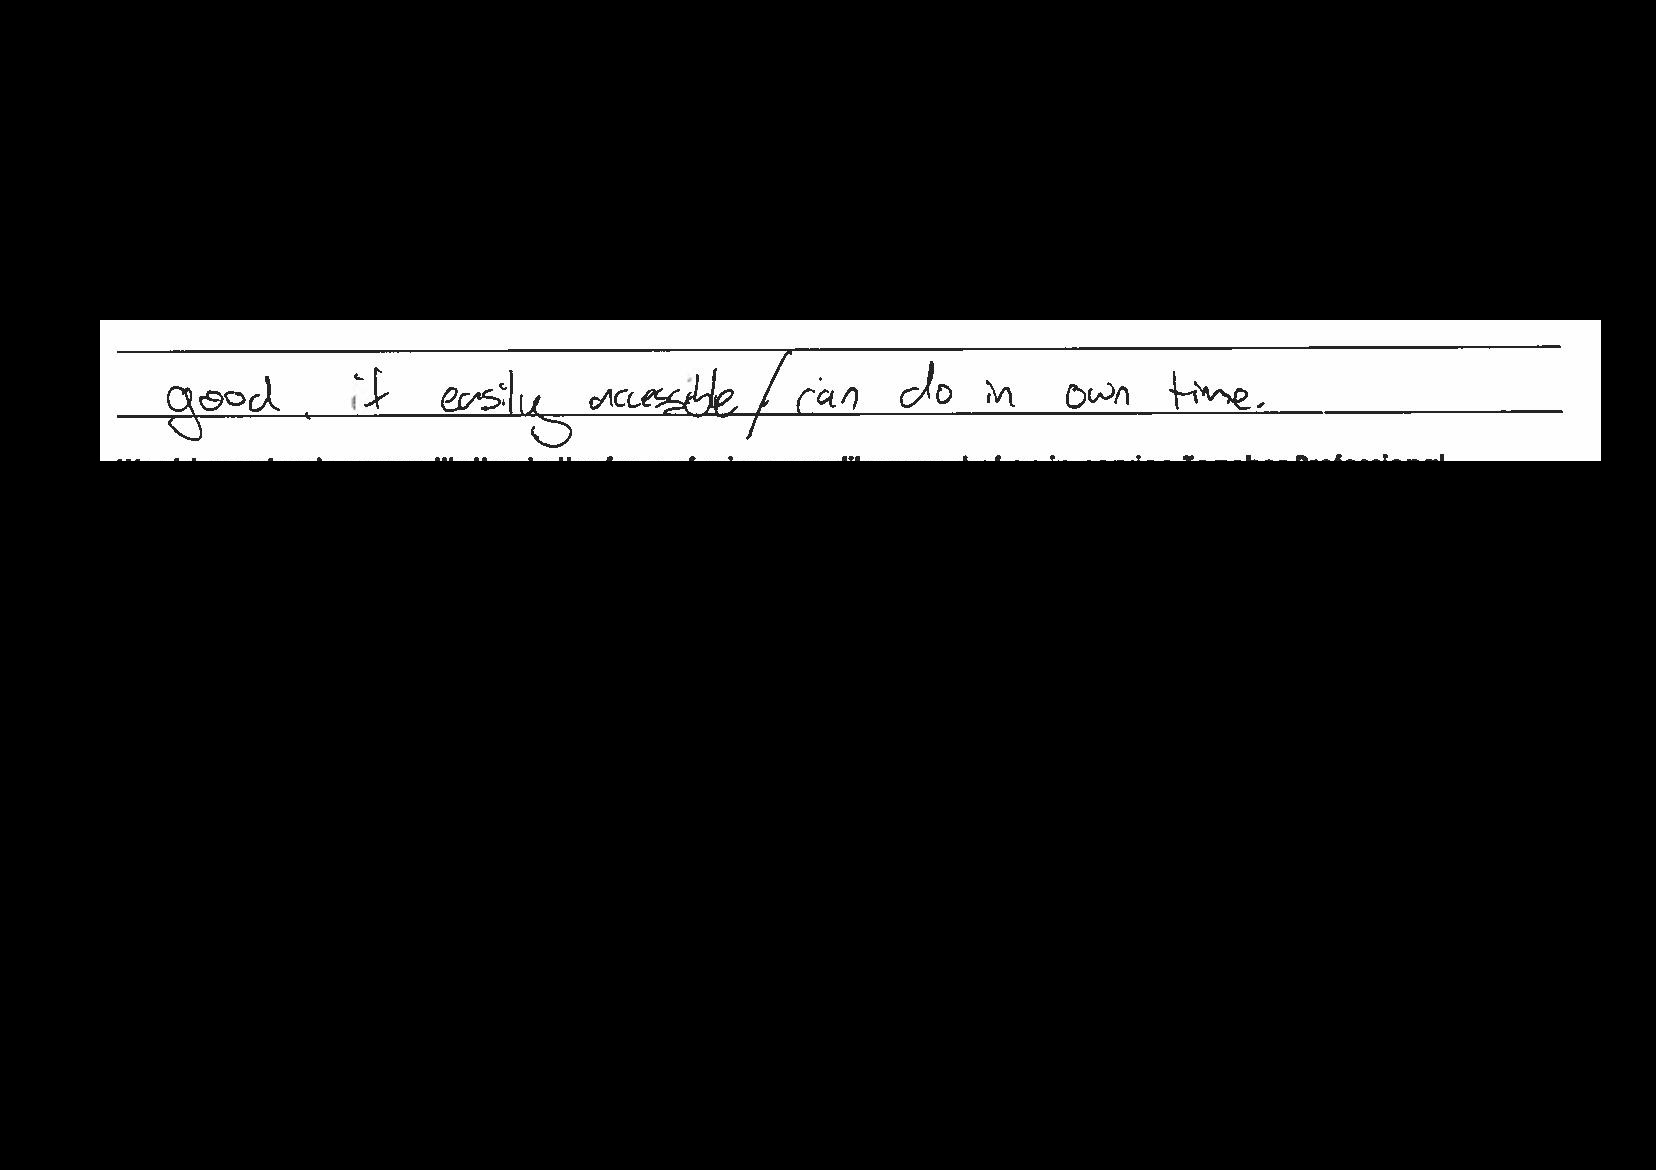 good, if easily accessible / can do in own time.